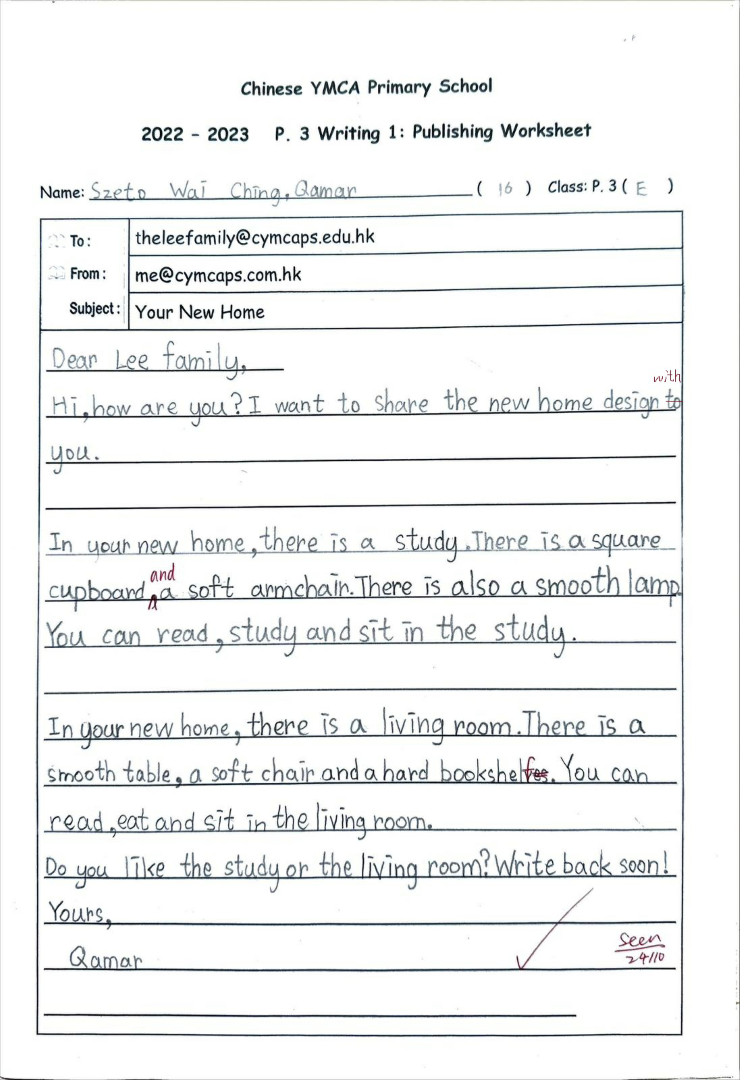 Chinese YMCA Primary School
2022 - 2023 P. 3 Writing 1: Publishing Worksheet
Name: Szeto Wai Ching, Qamar ( 16 ) Class: P. 3 ( E )
To: theleefamily@cymcaps.edu.hk
From: me@cymcaps.com.hk
Subject: Your New Home
Dear Lee family,
with
Hi, how are you? I want to share the new home design to
you.
In your new home, there is a study. There is a square
and
cupboard, a soft armchair. There is also a smooth lamp.
You can read, study and sit in the study.
In your new home, there is a living room. There is a
smooth table, a soft chair and a hard bookshelf. You can
read, eat and sit in the living room.
Do you like the study or the living room? Write back soon!
Yours,
Qamar
Seen
24/10